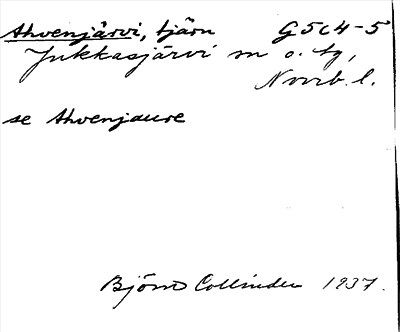 Ahvenjärvi, tjärn G5c4-5
Jukkasjärvi sn o. tg,
Norrb. l.
se Ahvenjaure
Björn Collinder 1937.